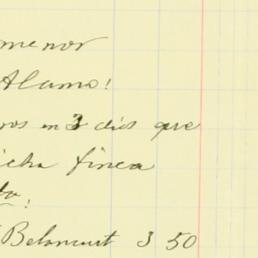 menor
Alamo!
ros en 3 dias que
icha finca
to:
Betancurt 3 50